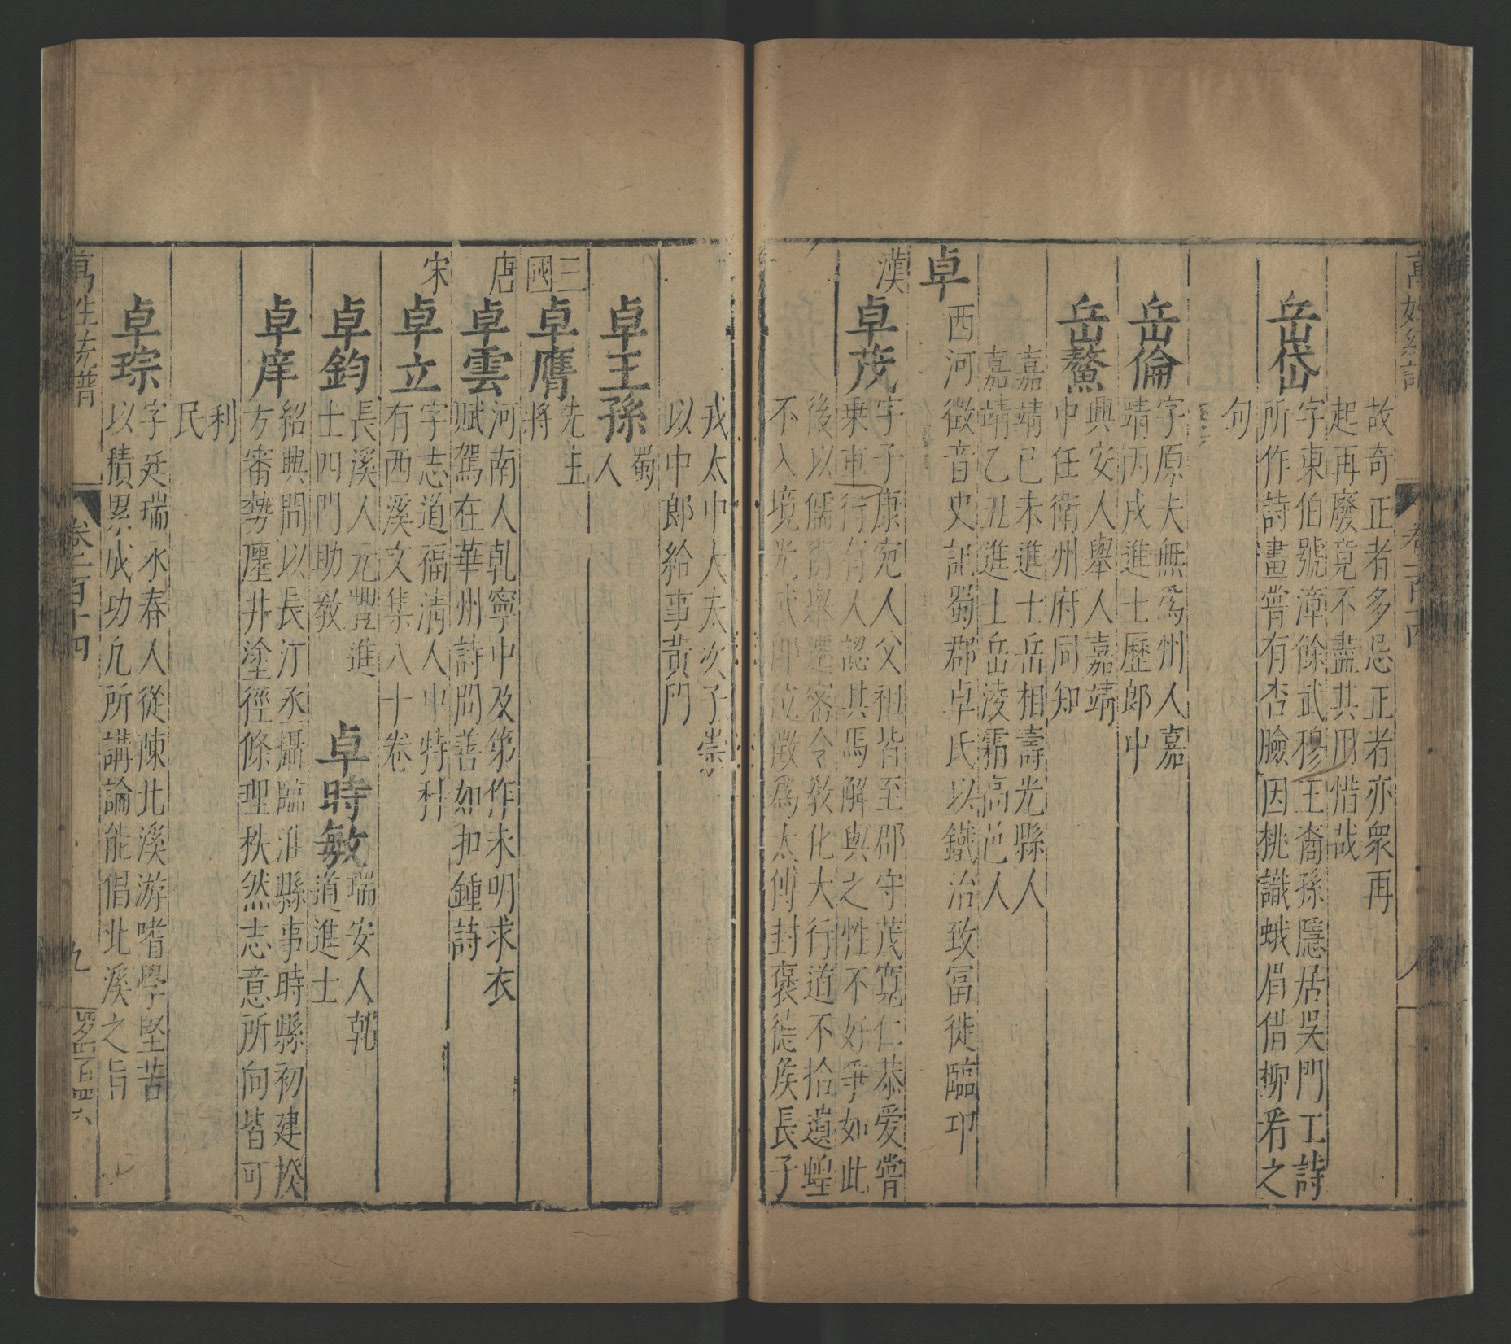 故奇正者多忌正者亦衆再
起再廢竟不盡其用惜哉
岳岱
字東伯號漳餘武穆王裔孫隱居吳門工詩
所作詩畫嘗有杏臉因桃識蛾眉借柳看之
句
岳倫
字原夫無爲州人嘉
靖丙戌進士歷郎中
岳鰲
興安人舉人嘉靖
中任衛州府同知
嘉靖己未進士岳相壽光縣人
嘉靖乙丑進士岳淩霜高邑人
卓
西河徵音史記蜀郡卓氏以鐵冶致富徙臨邛
漢
卓茂
字子康宛人父祖皆至郡守茂寬仁恭愛嘗
乘車行有人認其馬解與之性不好爭如此
後以儒術舉遷密令敎化大行道不拾遺蝗
不入境光武即位徵爲太傅封褒德侯長子
戎太中大夫次子崇
以中郎給事黃門
卓王孫
蜀
人
三國
卓膺
先主
將
唐
卓雲
河南人乾寧中及第作未明求衣
賦駕在華州詩問善如扣鍾詩
宋
卓立
字志道福清人中特科
有西溪文集八十卷
卓鈞
長溪人元豐進
士四門助敎
卓時敏
瑞安人乾
道進士
卓庠
紹興間以長汀丞攝臨淮縣事時縣初建揆
方審勢壥井塗徑條理秩然志意所向皆可
利
民
卓琮
字廷瑞永春人從陳北溪游嗜學堅苦
以積累成功凡所講論能倡北溪之旨
萬姓統譜
卷一百十四
九